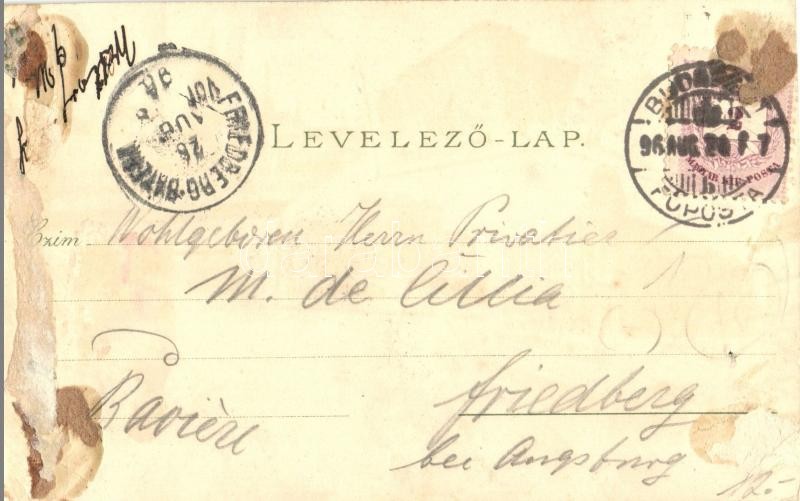 LEVELEZŐ-LAP.
FRIEDBERG-BAYERN
26
AUG
VOR
96
BUDAPEST
96 AUG 26 F 7
FŐPOSTA
MAGYAR KIR. POSTA
Czim Wohlgeboren Herrn Privatier
M. de Cillia
Friedberg
Bavière
bei Augsburg
12.-